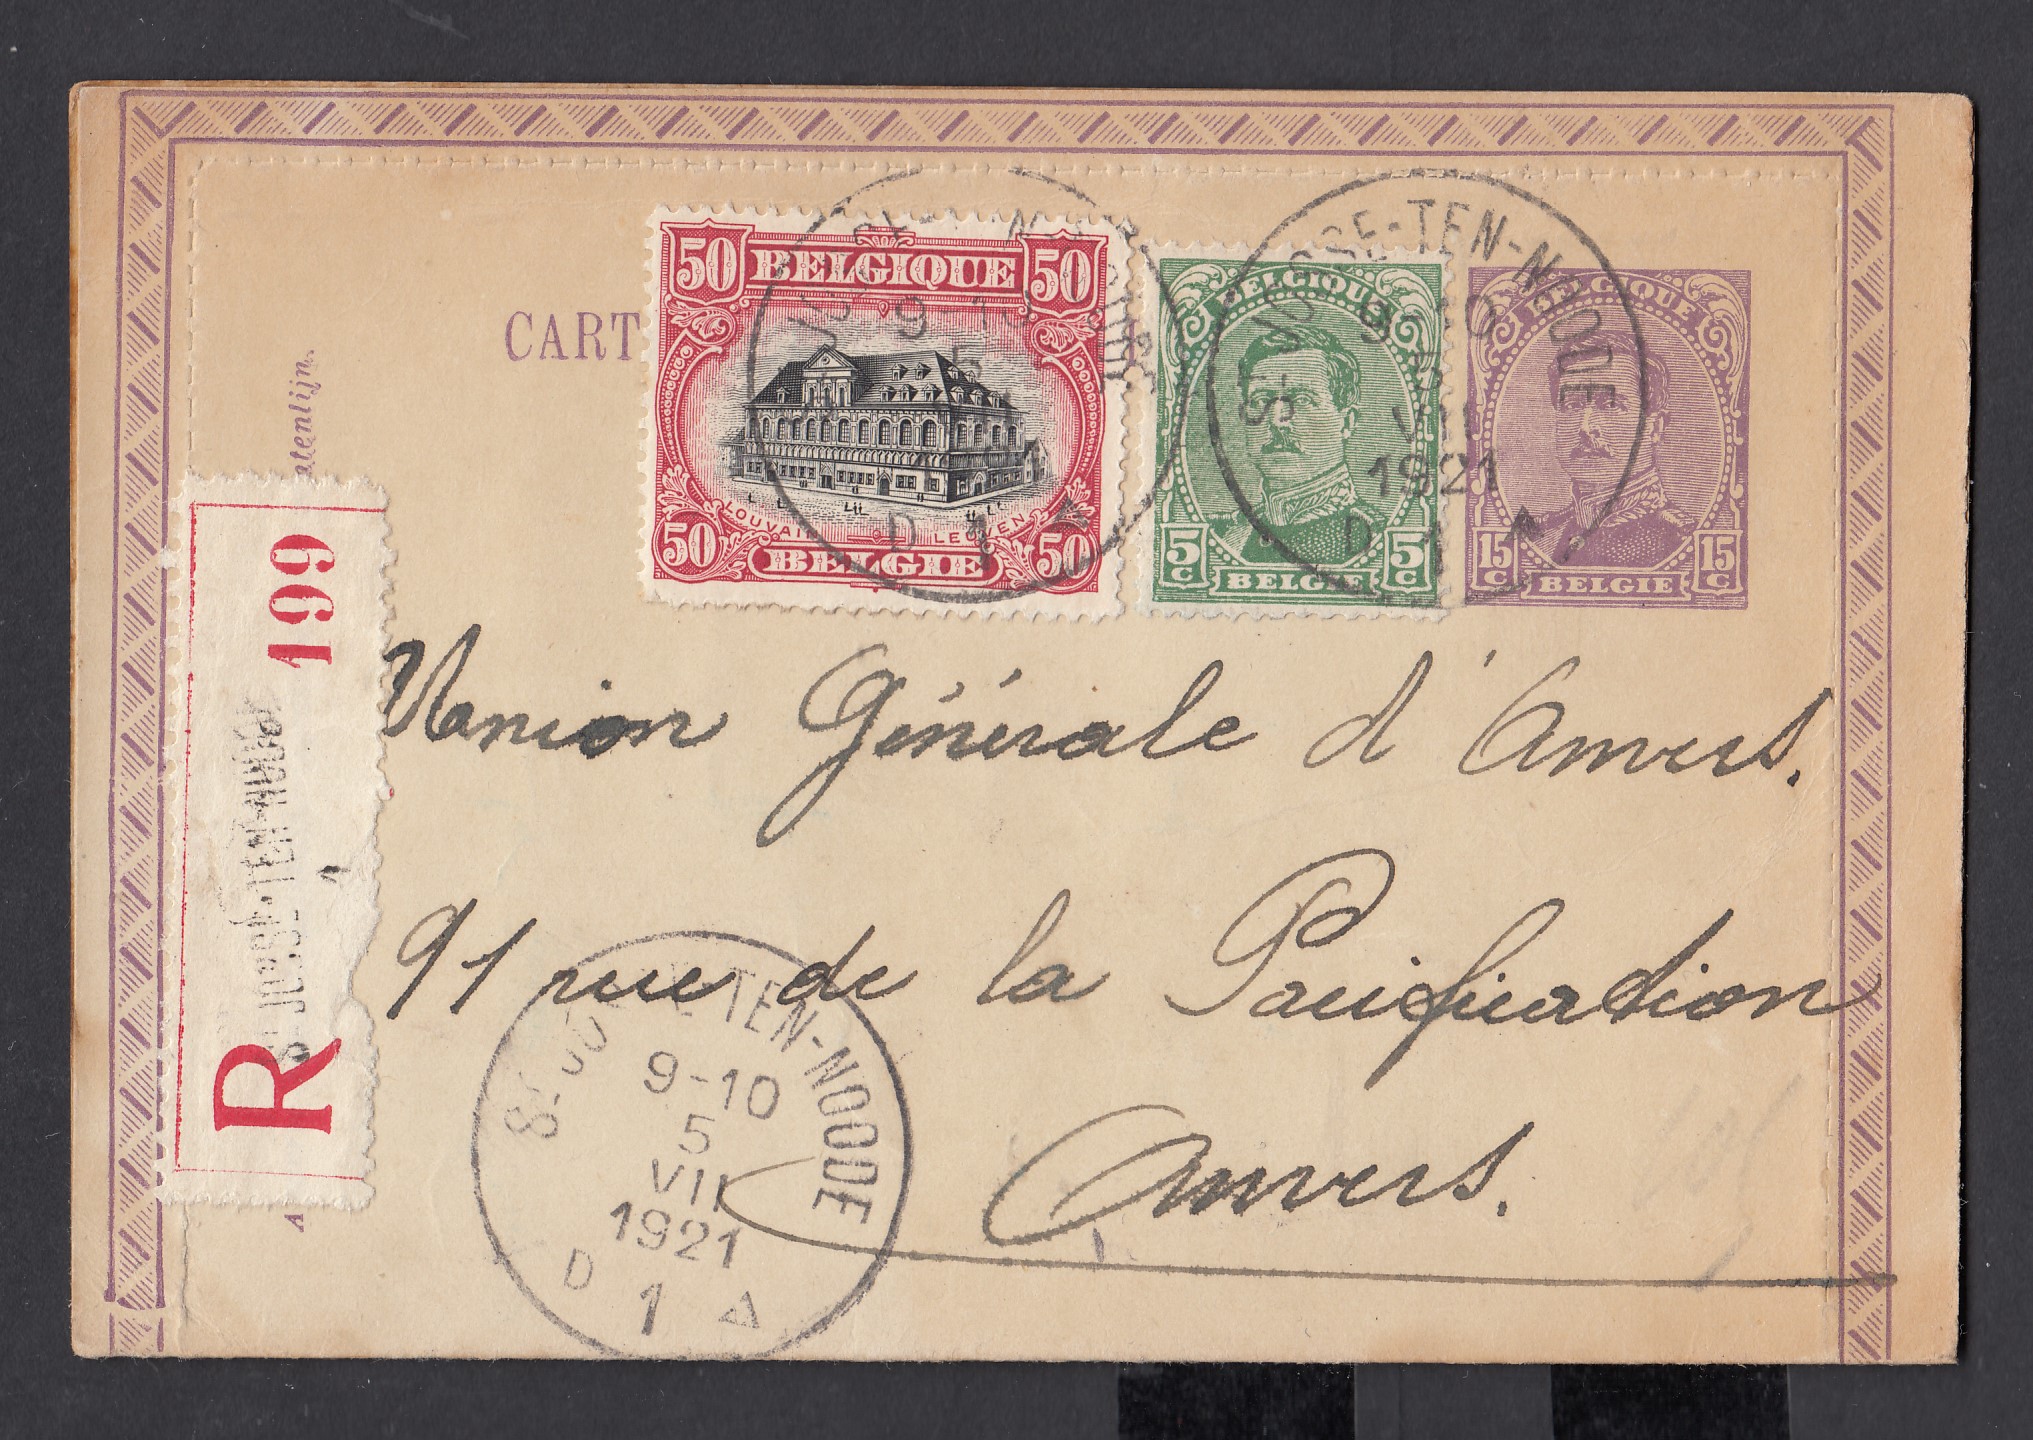 CART
atenlijn.
50 BELGIQUE 50
LOUVAIN LEUVEN
50 BELGIE 50
BELGIQUE
5c BELGIE 5c
BELGIQUE
15c BELGIE 15c
ST-JOSSE-TEN-NOODE
9-10
5
VII
1921
D 1 A
R
ST-JOSSE-TEN-NOODE
1
199
Union Générale d'Anvers.
91 rue de la Pacification
Anvers.
ST-JOSSE-TEN-NOODE
9-10
5
VII
1921
D 1 A